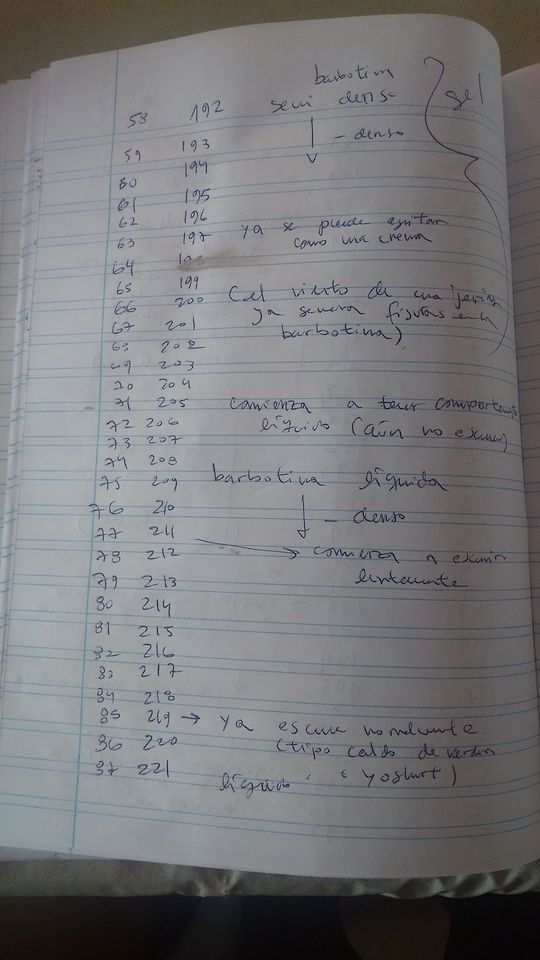 barbotina
58 192 semi denso gel
59 193 - denso
60 194
61 195
62 196 ya se puede agitar
63 197 como una crema
64 198
65 199
66 200 (al vierto de una
67 201 ya genera figuras en la
68 202 barbotina)
69 203
70 204
71 205 comienza a tener
72 206 líquido (aún no escurre)
73 207
74 208
75 209 barbotina líquida
76 210
77 211 - denso
78 212 comienza a escurrir
79 213 lentamente
80 214
81 215
82 216
83 217
84 218
85 219 → ya escurre normalmente
86 220 (tipo caldo de
87 221 líquido yoghurt)